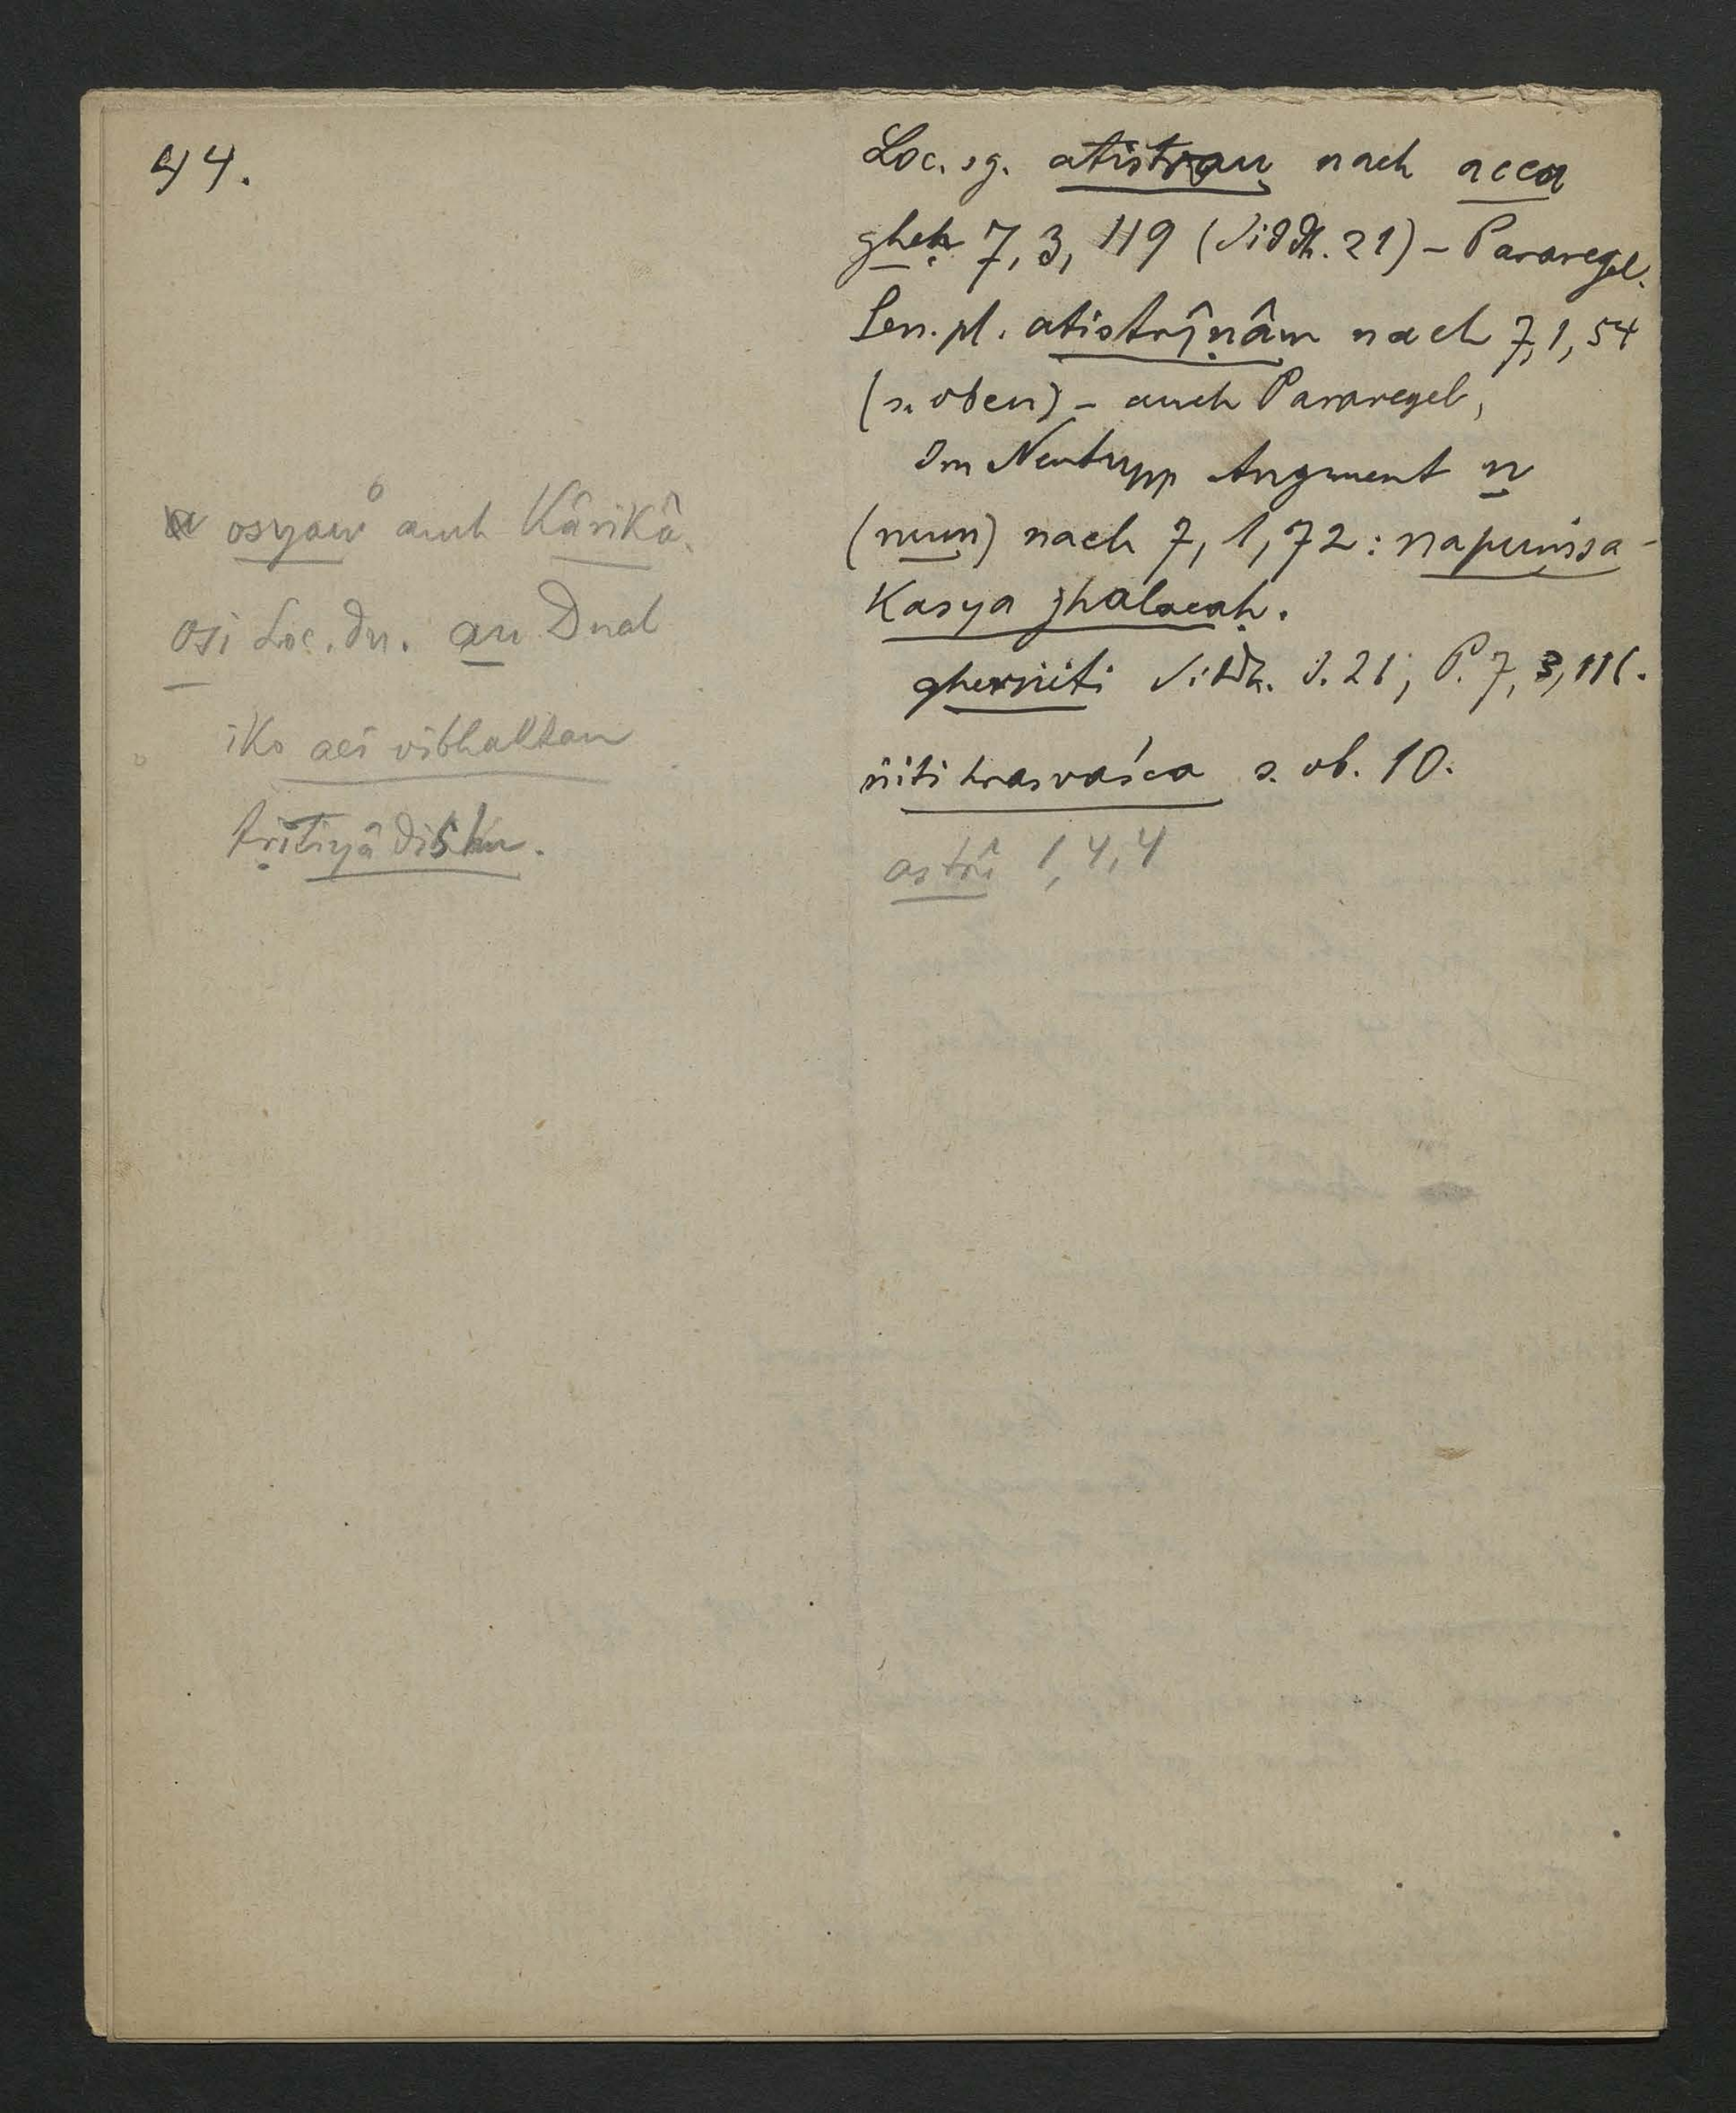 44.
Loc. sg. atistrau nach acca
gheḥ 7, 3, 119 (Siddh. 21) – Pararegel.
Gen. pl. atistrîṇâm nach 7, 1, 54
(s. oben) – auch Pararegel,
Im Neutrum Augment n
(num) nach 7, 1, 72: napuṃsa-
kasya jhalacaḥ.
gherṅiti Siddh. S. 21; P. 7, 3, 111.
ṅiti hrasvaśca s. ob. 10.
astrî 1, 4, 4
osyau auch Kârikâ.
osi Loc. du. au Dual
iko aci vibhaktau
tṛitîyâdishu.